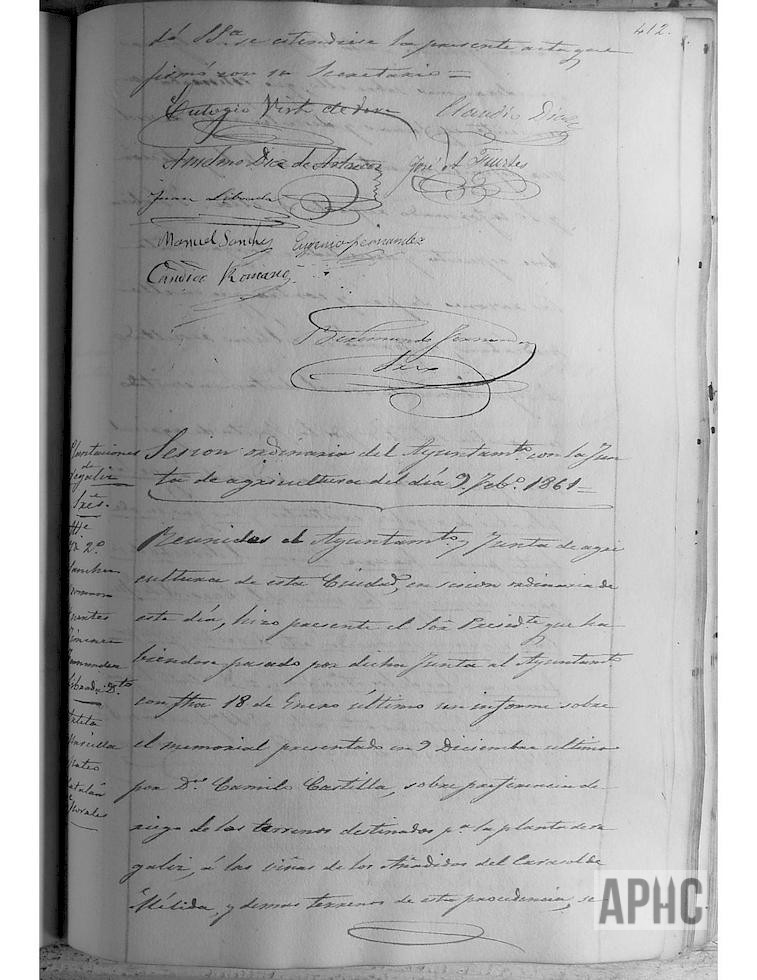 412.
dó SSª se estendiese la presente acta que
firmó con su Secretario =
Eulogio Claudio Diaz
Anselmo Diaz de José A. Fuertes
Juan Librada
Manuel Sanchez Eugenio Fernandez
Candido Romano
Fernandez
Plantaciones
de
regaliz
Sres.
Alle
Tte 2º
Sanchez
Romano
Fuertes
Gimenez
Fernandez
Librada Dto
Mateo
Catalán
Morales
Sesion ordinaria del Ayuntamto con la Jun
ta de agricultura del día 9 Febº 1861=
Reunidos el Ayuntamto y Junta de agri
cultura de esta Ciudad, en sesion ordinaria de
este día, hizo presente el Sor Presidte que ha
biendose pasado por dicha Junta al Ayuntamto
con fha 18 de Enero último un informe sobre
el memorial presentado en 9 Diciembre ultimo
por Dn Camilo Castilla, sobre preferencia de
riego de los terrenos destinados pª la planta de re
galiz, á las viñas de los Añadidos del Carasol de
Mélida, y demas terrenos de esta procedencia, se
APHC